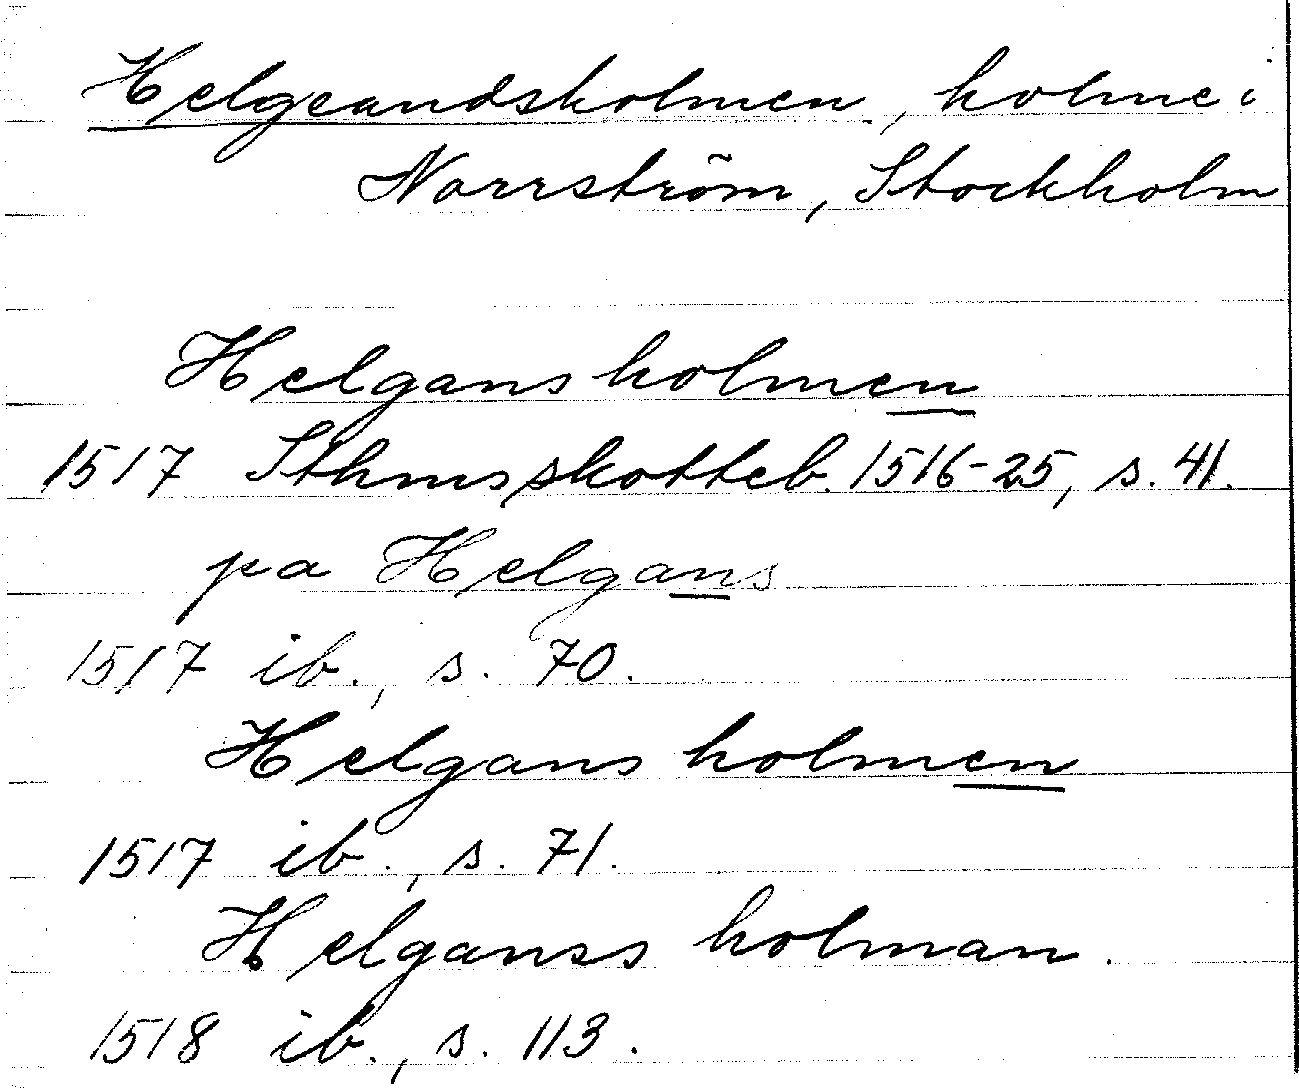 Helgeandsholmen, holme i
Norrström, Stockholm
Helgansholmen
1517 Sthmsskotteb. 1516-25, s. 41.
pa Helgans
1517 ib., s. 70.
Helgans holmen
1517 ib., s. 71.
Helganss holman.
1518 ib., s. 113.